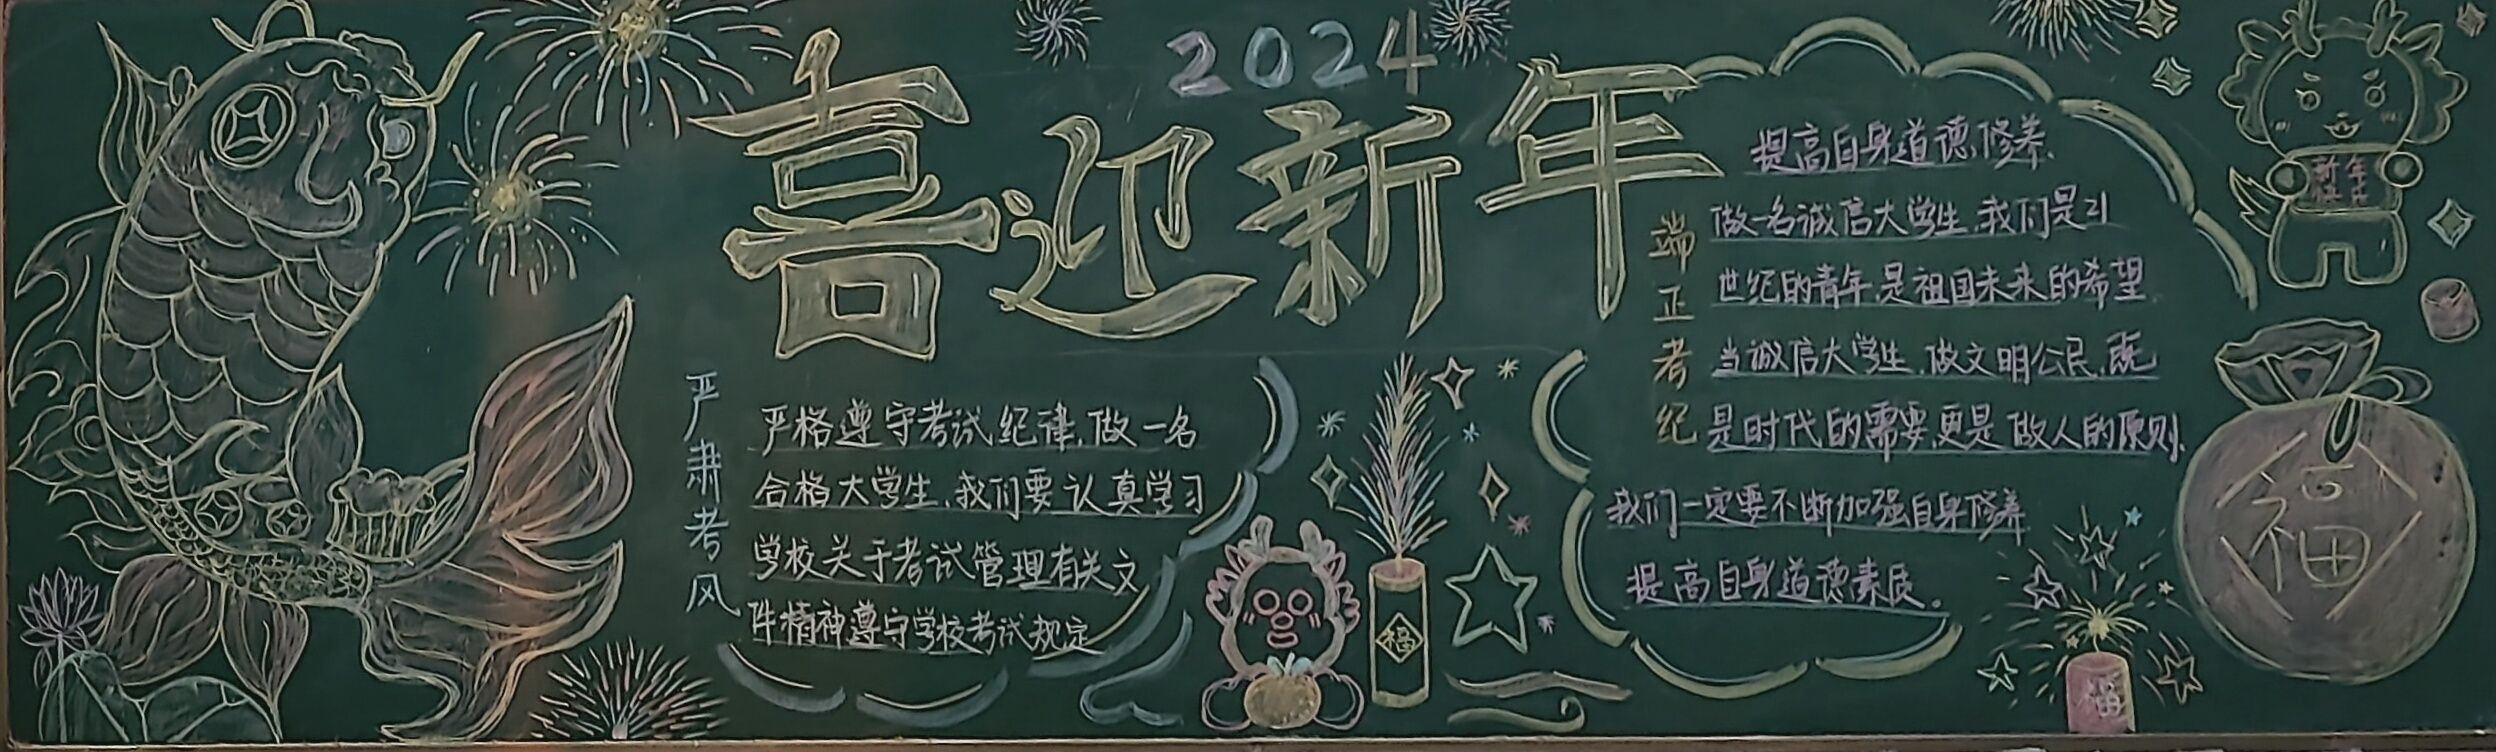 2024
喜迎新年
严肃考风
严格遵守考试纪律,做一名
合格大学生,我们要认真学习
学校关于考试管理有关文
件精神遵守学校考试规定
端正考纪
提高自身道德修养,
做一名诚信大学生,我们是21
世纪的青年,是祖国未来的希望,
当诚信大学生,做文明公民,既
是时代的需要,更是做人的原则,
我们一定要不断加强自身修养
提高自身道德素质。
新年
快乐
福
福
福